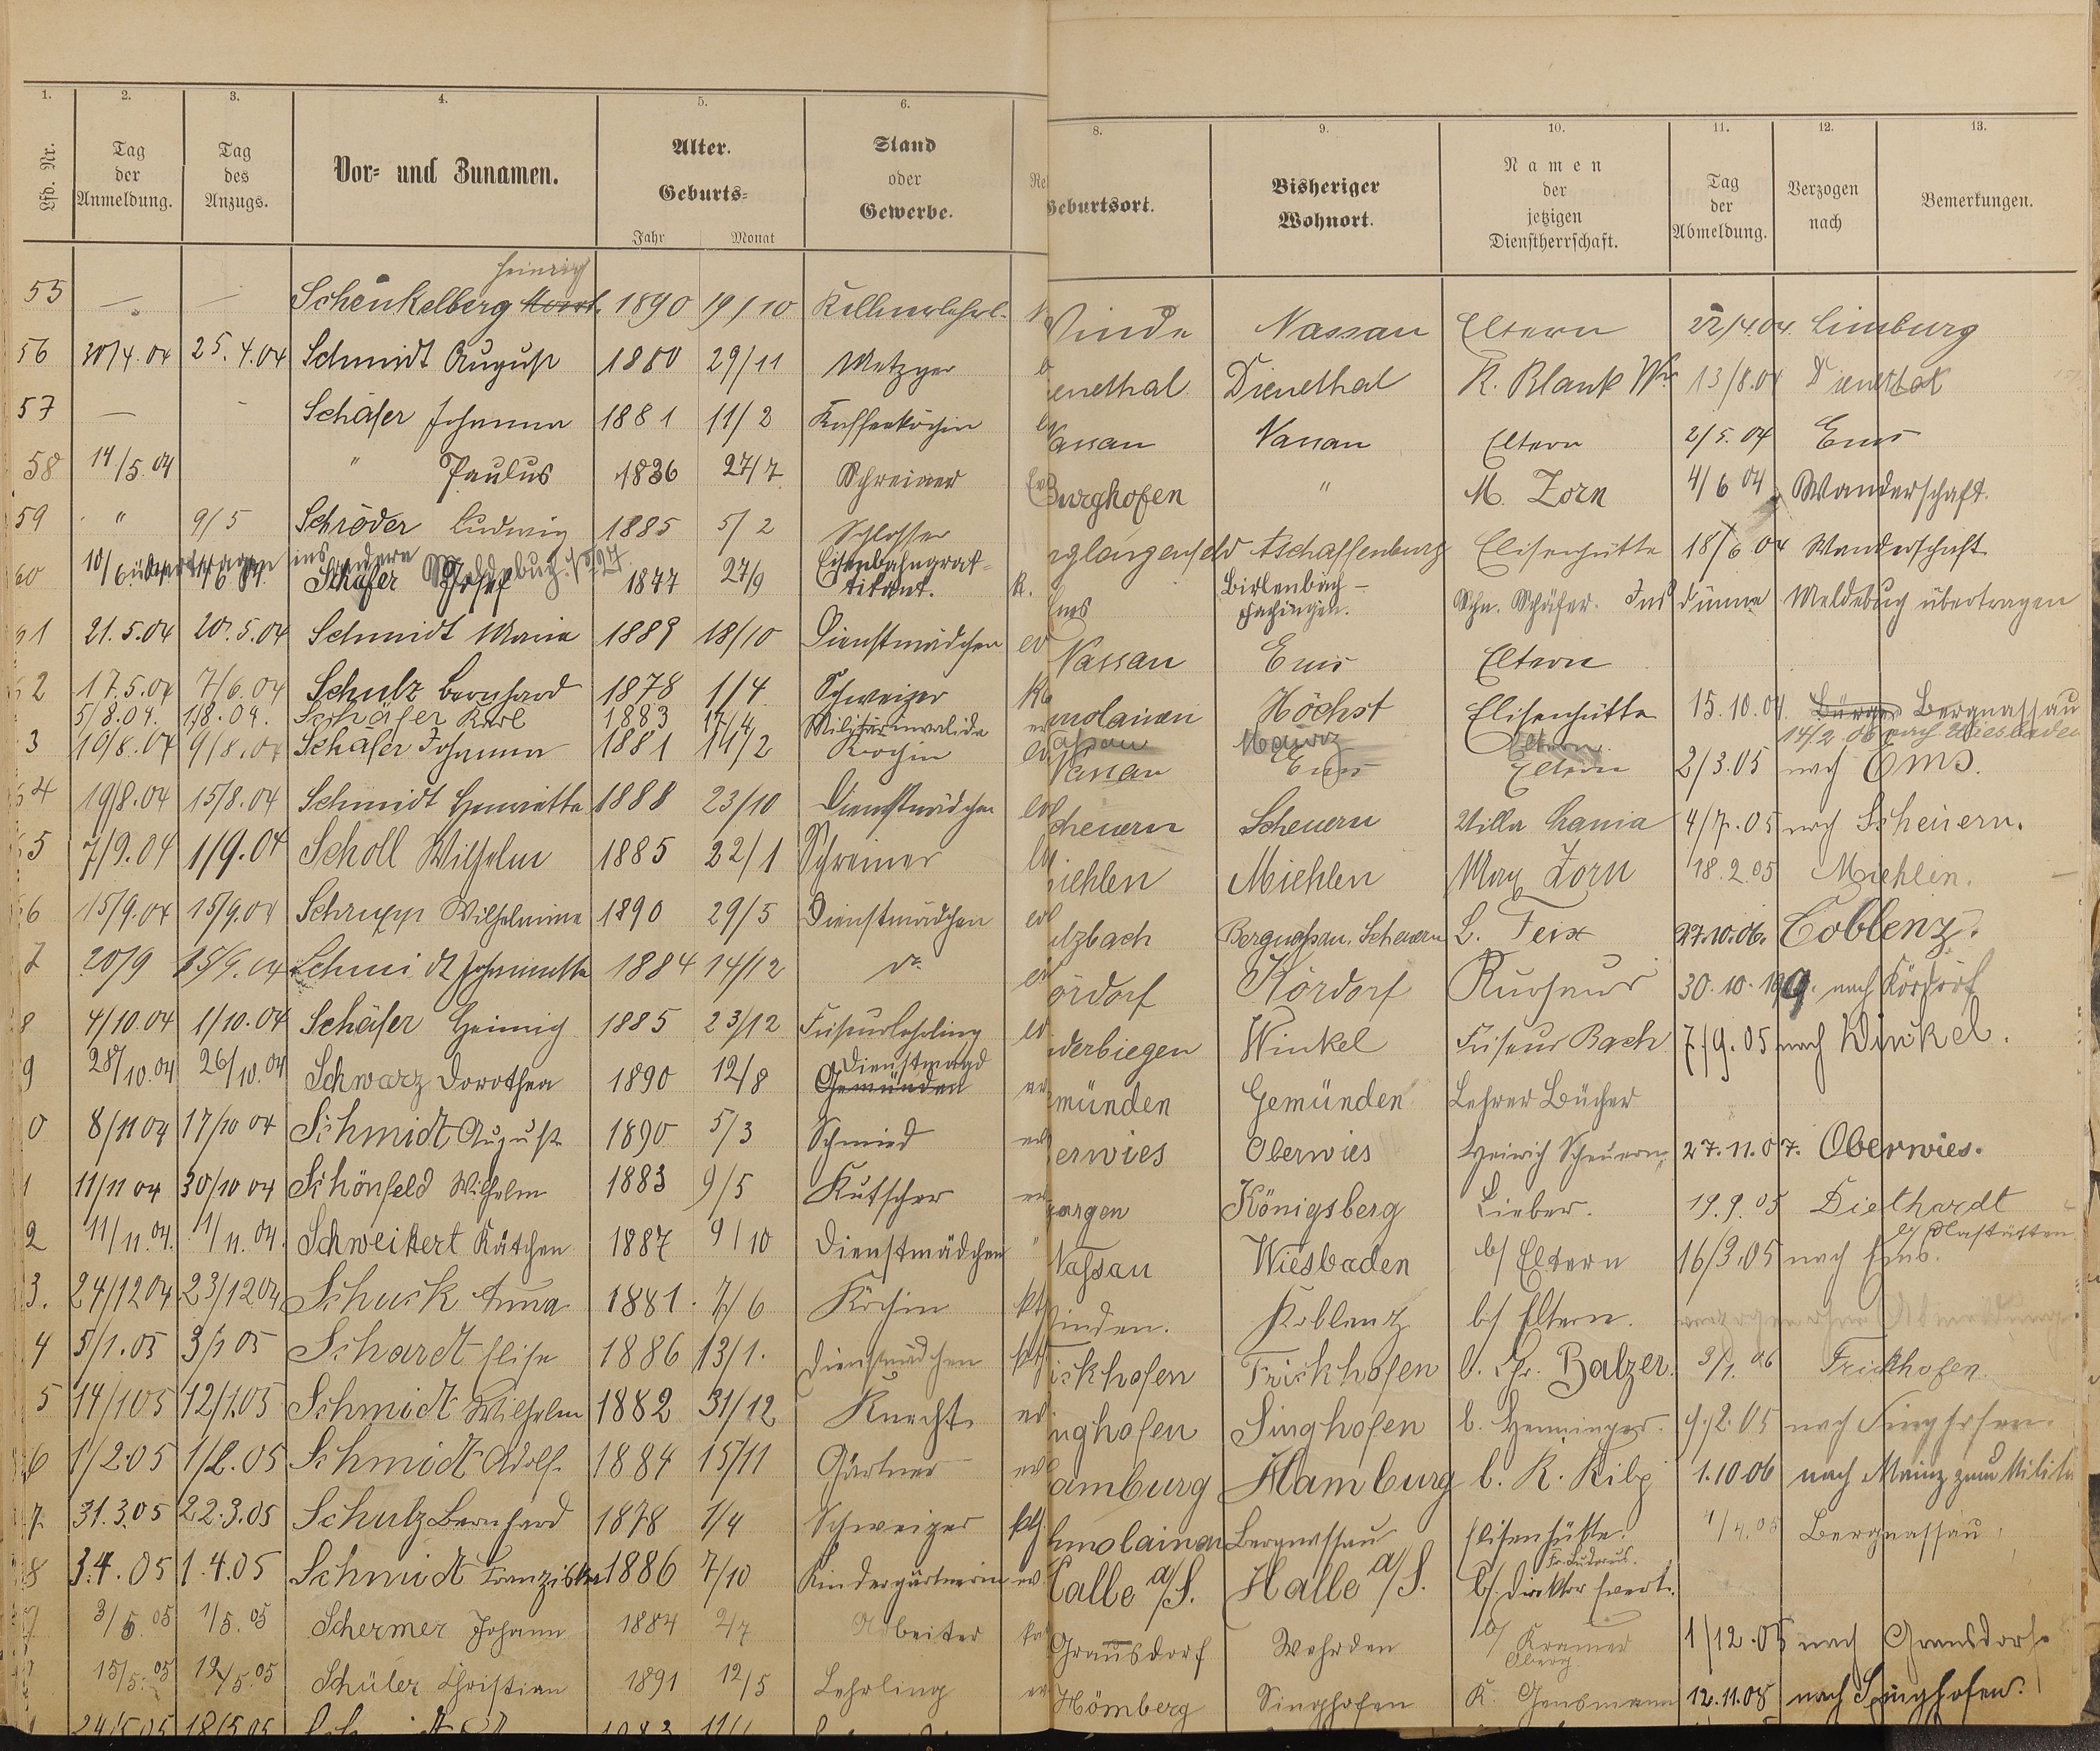 1. 2. 3. 4. 5. 6. 8. 9. 10. 11. 12. 13.
Lfd. Nr. Tag der Anmeldung. Tag des Anzugs. Vor- und Zunamen. Alter. Geburts- Jahr Monat Stand oder Gewerbe. Geburtsort. Bisheriger Wohnort. Namen der jetzigen Dienstherrschaft. Tag der Abmeldung. Verzogen nach Bemerkungen.
Heinrich
55 — — Schenkelberg 1890 19/10 Kellnerlehrl. Nassau Eltern 22/4.04. Limburg
56 30/4.04 25.4.04 Schmidt August 1880 29/11 Metzger enethal Dienethal K. Blank Ww. 13/8.04 Dienethal
57 — - Schäfer Johanna 1881 11/2 Kaffeeköchin assau Nassau Eltern 2/5.04 Ems
58 14/5.04 " Paulus 1836 27/7 Schreiner Burghofen " M. Zorn 4/6 04 Wanderschaft.
59 " 9/5 Schröder Ludwig 1885 5/2 Schlosser nglangenfeld Aschaffenburg Elisenhütte 18/6 04 Wanderschaft
übertragen ins andere Meldebuch
60 10/6 Schäfer Josef 1877 27/9 Eisenbahnprak-tikant. K. Ems Birlenbach-Fachingen. Schn. Schäfer. Ins dünne Meldebuch übertragen
61 21.5.04 20.5.04 Schmidt Maria 1889 18/10 Dienstmädchen ev Nassau Ems Eltern
2 17.5.04 7/6.04 Schulz Bernhard 1878 1/4 Schweizer molainen Höchst Elisenhütte 15.10.04. Bergnassau
5/8.04. 1/8.04. Schäfer Karl 1883 17/4 Militärinvalide assau Eltern 14/2 06 nach Wiesbaden
3 10/8.04 9/8.04 Schäfer Johanna 1881 14/2 Köchin Nassau Ems Eltern 2/3.05 nach Ems.
4 19/8.04 15/8.04 Schmidt Henriette 1888 23/10 Dienstmädchen cheuern Scheuern Villa Hania 4/7.05 nach Scheuern.
5 7/9.04 1/9.04 Scholl Wilhelm 1885 22/1 Schreiner iehlen Miehlen Max Zorn 18.2.05 Miehlen.
6 15/9.04 15/9.04 Schrupp Wilhelmine 1890 29/5 Dienstmädchen lzbach Bergnassau. Scheuern L. Feix 27.10.06. Coblenz.
7 20/9 15/9.04 Schmidt Johannette 1884 14/12 do. ördorf Kördorf Kurhaus 30.10. nach Kördorf
8 4/10.04 1/10.04 Schäfer Heinrich 1885 23/12 Friseurlehrling derbiegen Winkel Friseur Bach 7/9.05 nach Winkel.
9 28/10.04 26/10.04 Schwarz Dorothea 1890 12/8 Dienstmagd Gemünden münden Gemünden Lehrer Bücher
0 8/11 04 17/10 04 Schmidt August 1890 5/3 Schmied erwies Oberwies Heinrich Scheuern, 27.11.07. Oberwies.
1 11/11 04 30/10 04 Schönfeld Wilhelm 1883 9/5 Kutscher gargen Königsberg Lieber. 19.9.05 Diethardt
2 11/11.04. 11/11.04. Schweikert Kätchen 1887 9/10 Dienstmädchen " Nassau Wiesbaden b/ Eltern 16/3.05 nach Ems. b/ Nastätten
3. 24/12 04 23/12 04 Schuck Anna 1881. 7/6 Köchin kth inden. Koblenz b/ Eltern. verzogen ohne Abmeldung.
4 5/1.05 3/1 05 Schardt Elise 1886 13/1. Dienstmädchen kth ickhofen Frickhofen b. Chr. Balzer. 3/1. 06 Frickhofen.
5 14/1 05 12/1.05 Schmidt Wilhelm 1882 31/12 Knecht ev nghofen Singhofen b. Henninger. 9/2.05 nach Singhofen.
6 1/2.05 1/2.05 Schmidt Adolf. 1884 15/11 Gärtner ev amburg Hamburg b. K. Kilp 1.10 06 nach Mainz zum Militä
7. 31.3.05 22.3.05 Schulz Bernhard 1878 1/4 Schweizer kth hmolainen Bergnassau Elisenhütte. 1/4.05 Bergnassau
8 3.4.05 1.4.05 Schmidt Franziska 1886 7/10 Kindergärtnerin ev Halle a/S. Halle a/S. b/ Direktor Ewert.
3/5.05 1/5.05 Schermer Johann 1884 2/7 Arbeiter Gransdorf Wehrden b/ Kramer Oberg. 1/12.05 nach Gransdorf.
15/5.05 12/5.05 Schüler Christian 1891 12/5 Lehrling ev Hömberg Singhofen K. Gensmann 12.11.05 nach Singhofen.
24/5 05 18/5 05